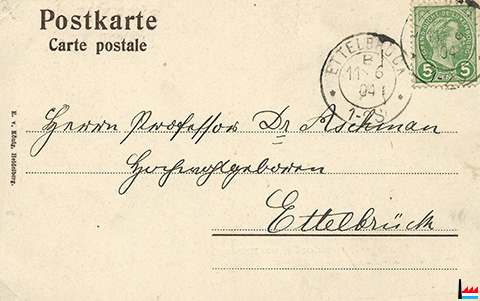 Postkarte
Carte postale
ETTELBRUCK
B
11 6
04
1-2S
5 5
E. v. König, Heidelberg.
Herrn Professor Dr Aschman
Hochwohlgeboren
Ettelbrück